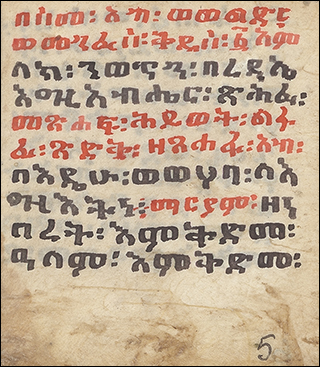 በስመ፡ አብ፡ ወወልድ፡
ወመንፈስ፡ ቅዱስ፡ ፩አም
ላክ፡ ንወጥን፡ በረዲኤ
እግዚአብሔር፡ ጽሕፈ፡
መጽሐፍ፡ ሕይወት፡ ልፋ
ፈ፡ ጽድቅ፡ ዘጸሐፈ፡ አብ፡
በእዴሁ፡ ወወሀባ፡ ለእ
ግዚእትነ፡ ማርያም፡ ዘነ
በረት፡ እምቅድመ፡
ዓለም፡ እምቅድመ፡
5